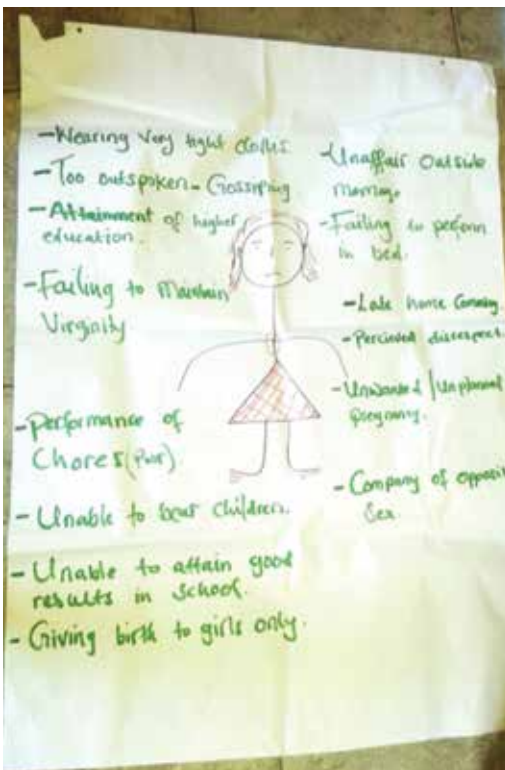 -Wearing very tight cloths.
-Too outspoken - Gossiping
-Attainment of higher
education.
-Failing to maintain
Virginity
-Performance of
Chores (Poor).
-Unable to bear children.
-Unable to attain good
results in school.
-Giving birth to girls only.
-Unaffair outside
marriage
-Failing to perform
in bed.
-Late home Coming
-Percieved disrespect
-Unwanted/Unplanned
pregnancy.
-Company of opposit
Sex